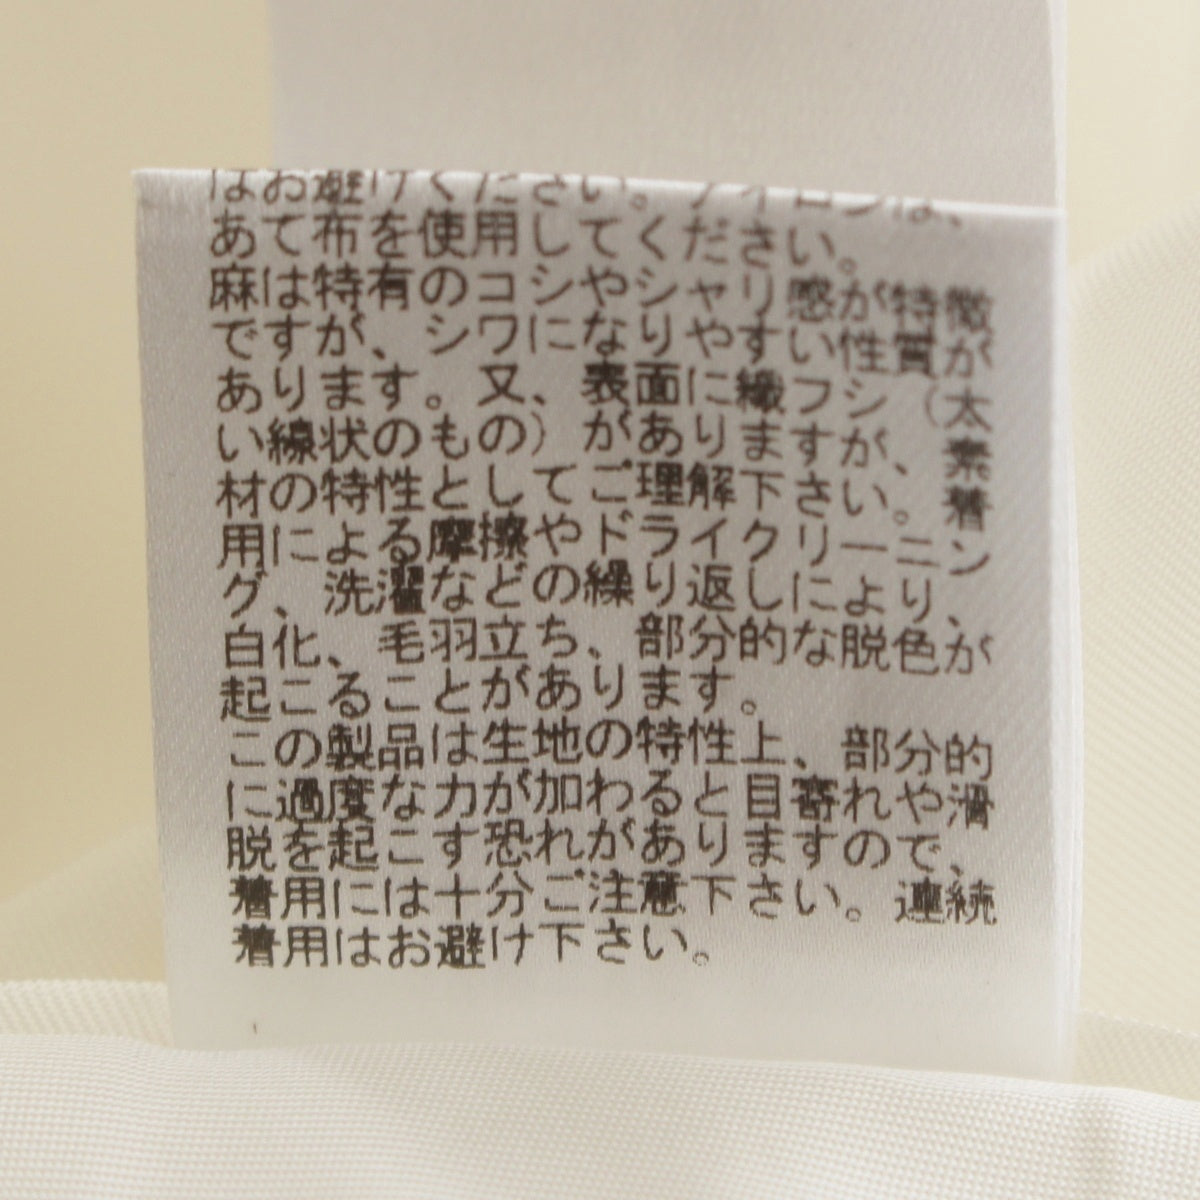 はお避けください。アイロンは、
あて布を使用してください。
麻は特有のコシやシャリ感が特徴
ですが、シワになりやすい性質が
あります。又、表面に織フシ（太
い線状のもの）がありますが、素
材の特性としてご理解下さい。着
用による摩擦やドライクリーニン
グ、洗濯などの繰り返しにより、
白化、毛羽立ち、部分的な脱色が
起こることがあります。
この製品は生地の特性上、部分的
に過度な力が加わると目寄れや滑
脱を起こす恐れがありますので、
着用には十分ご注意下さい。連続
着用はお避け下さい。